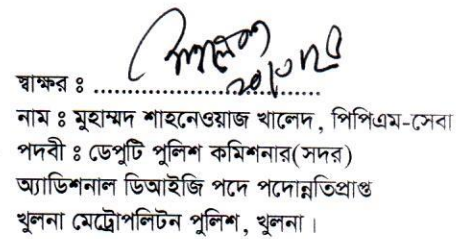 স্বাক্ষর ঃ ..................................
নাম ঃ মুহাম্মদ শাহনেওয়াজ খালেদ, পিপিএম-সেবা
পদবী ঃ ডেপুটি পুলিশ কমিশনার(সদর)
অ্যাডিশনাল ডিআইজি পদে পদোন্নতিপ্রাপ্ত
খুলনা মেট্রোপলিটন পুলিশ, খুলনা।